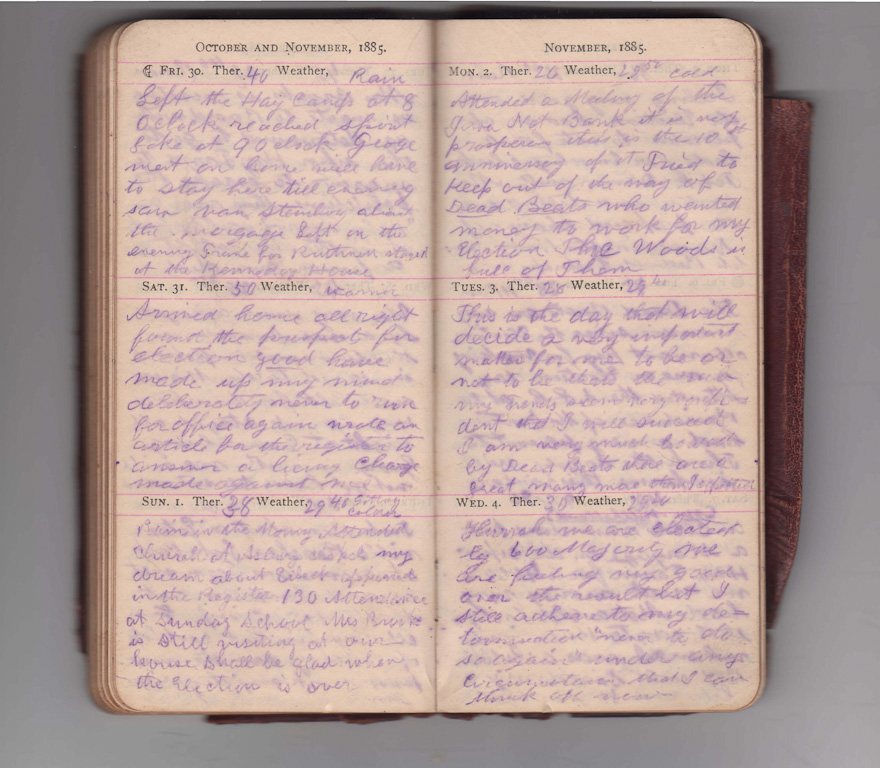 OCTOBER AND NOVEMBER, 1885.
FRI. 30. Ther. 40 Weather, Rain
Left the Hay Camp at 8
O clock reached spirit
Lake at 9 oclock George
went on home
to stay here till evening
saw van about
the morgage Left on the
evening for Ruthven stoped
at the House
SAT. 31. Ther. 50 Weather, warm
Arrived home all right
found the prospect for
election good have
made up my mind
deliberately never to run
for office again wrote an
article for the register to
answer a Charge
made against me
SUN. 1. Ther. 38 Weather, 29 40
colder
Rain in the Attended
Church at my
dream about appeared
in the Register 130 Attendance
at Sunday School Ms
is still visiting at our
house shall be glad when
the Election is over
NOVEMBER, 1885.
MON. 2. Ther. 26 Weather, 29 50 cold
Attended a Meeting of the
Iowa Nat Bank it is very
prosperous this is the 10
anniversary of it Tried to
Keep out of the way of
Dead Beats who wanted
money to work for my
Election The Woods is
full of Them
TUES. 3. Ther. 28 Weather, 29
This is the day that will
decide a very important
matter for me to be or
not to be that's the
my friends seem very confi-
dent that I will succeed
I am very much bored
by Dead Beats there are a
great many more than I expected
WED. 4. Ther. 30 Weather, 29
Hurrah we are elected
by 600 Majority we
are feeling very good
over the result but I
still adhere to my de=
termination "never to do
so again" under any
circumstances that I can
think of now